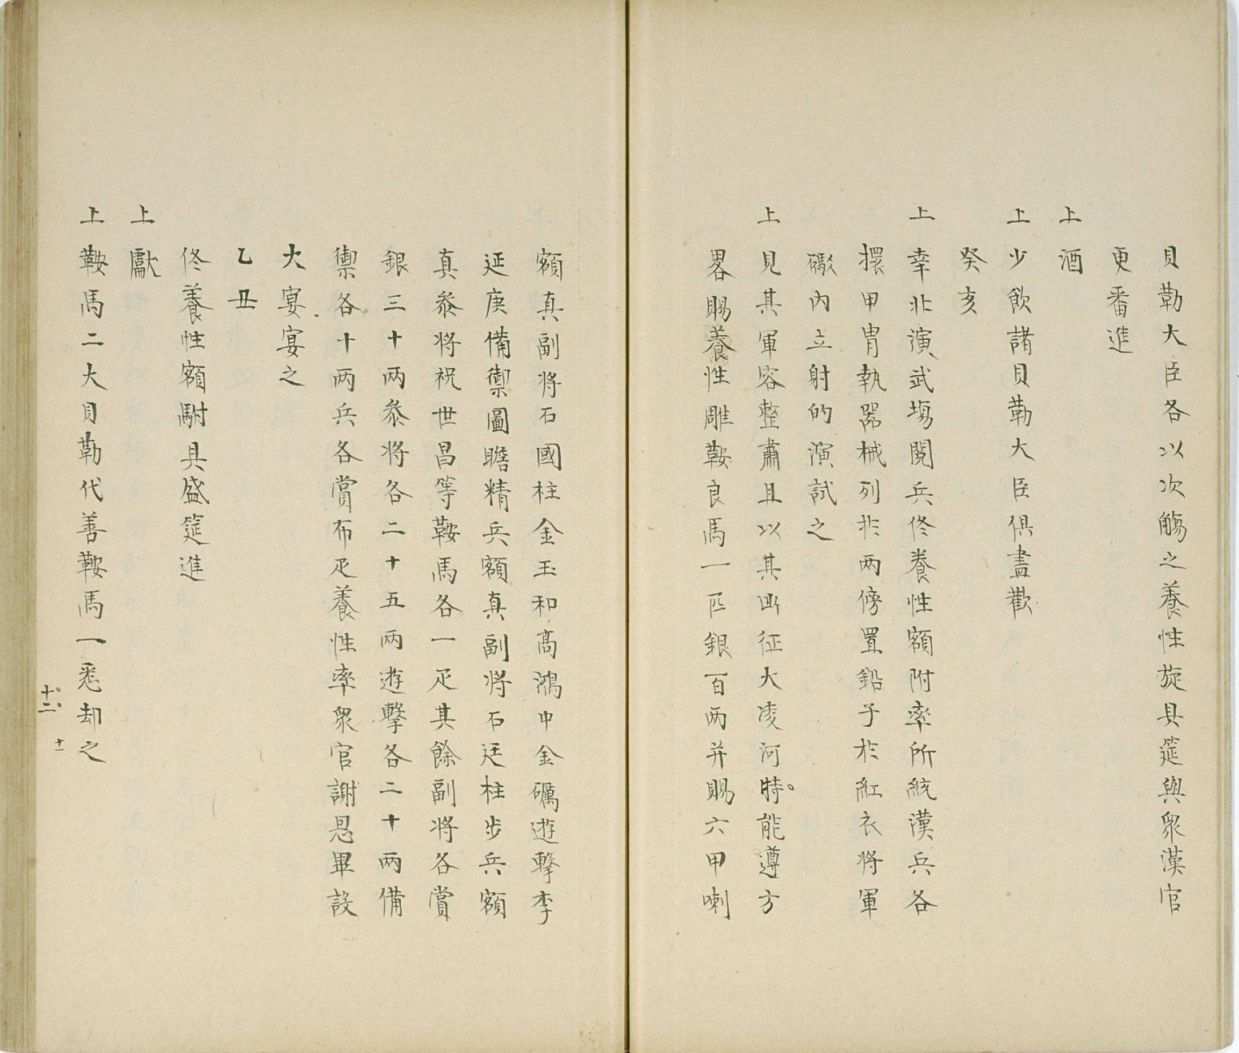 貝勒大臣各以次觴之養性旋具筵與衆漢官
更番進
上酒
上少飲諸貝勒大臣俱盡歡
癸亥
上幸北演武塲閲兵佟養性額附率所統漢兵各
擐甲胄執噐械列於兩傍置鉛子於紅衣將軍
礮内立射的演試之
上見其軍容整肅且以其出征大凌河時能遵方
畧賜養性雕鞍良馬一匹銀百两并賜六甲喇
額真副將石國柱金玉和高鴻中金礪遊擊李
延庚備禦圖瞻精兵額真副將石廷柱步兵額
真叅將祝世昌等鞍馬各一疋其餘副將各賞
銀三十两叅將各二十五两遊擊各二十两備
禦各十两兵各賞布疋養性率衆官謝恩畢設
大宴宴之
乙丑
佟養性額駙具盛筵進
上獻
上鞍馬二大貝勒代善鞍馬一悉却之
十二
十一